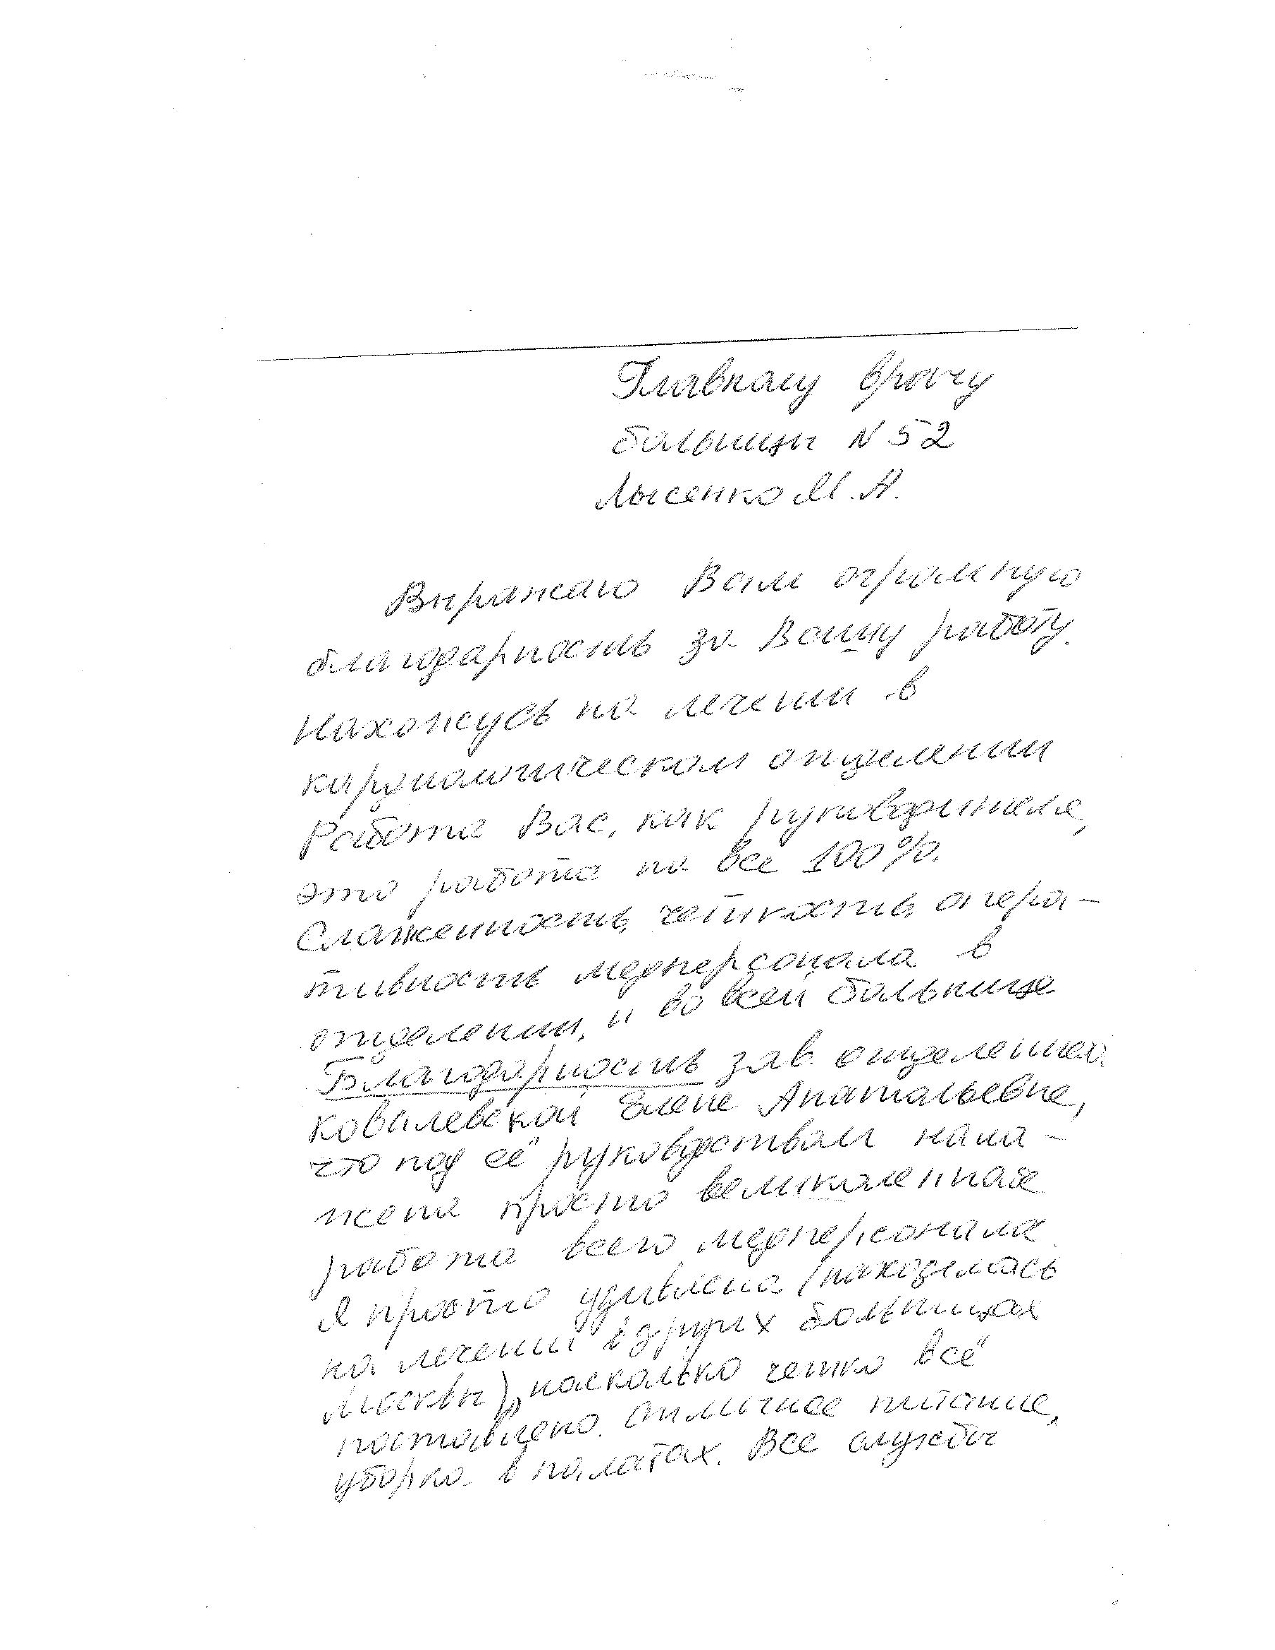 Главному врачу
больницы N 52
Лысенко М. А.
Выражаю Вам огромную
благодарность за Вашу работу.
Нахожусь на лечении в
кардиологическом отделении
Работа Вас, как руководителя,
это работа на все 100%.
Слаженность, четкость, опера-
тивность медперсонала в
отделении, и во всей больнице
Благодарность зав. отделением
Ковалевской Елене Анатольевне,
что под её руководством нала-
жена просто великолепная
работа всего медперсонала
Я просто удивлена (находилась
на лечении в других больницах
Москвы), насколько четко всё
поставлено. Отличное питание,
уборка в палатах. Все службы